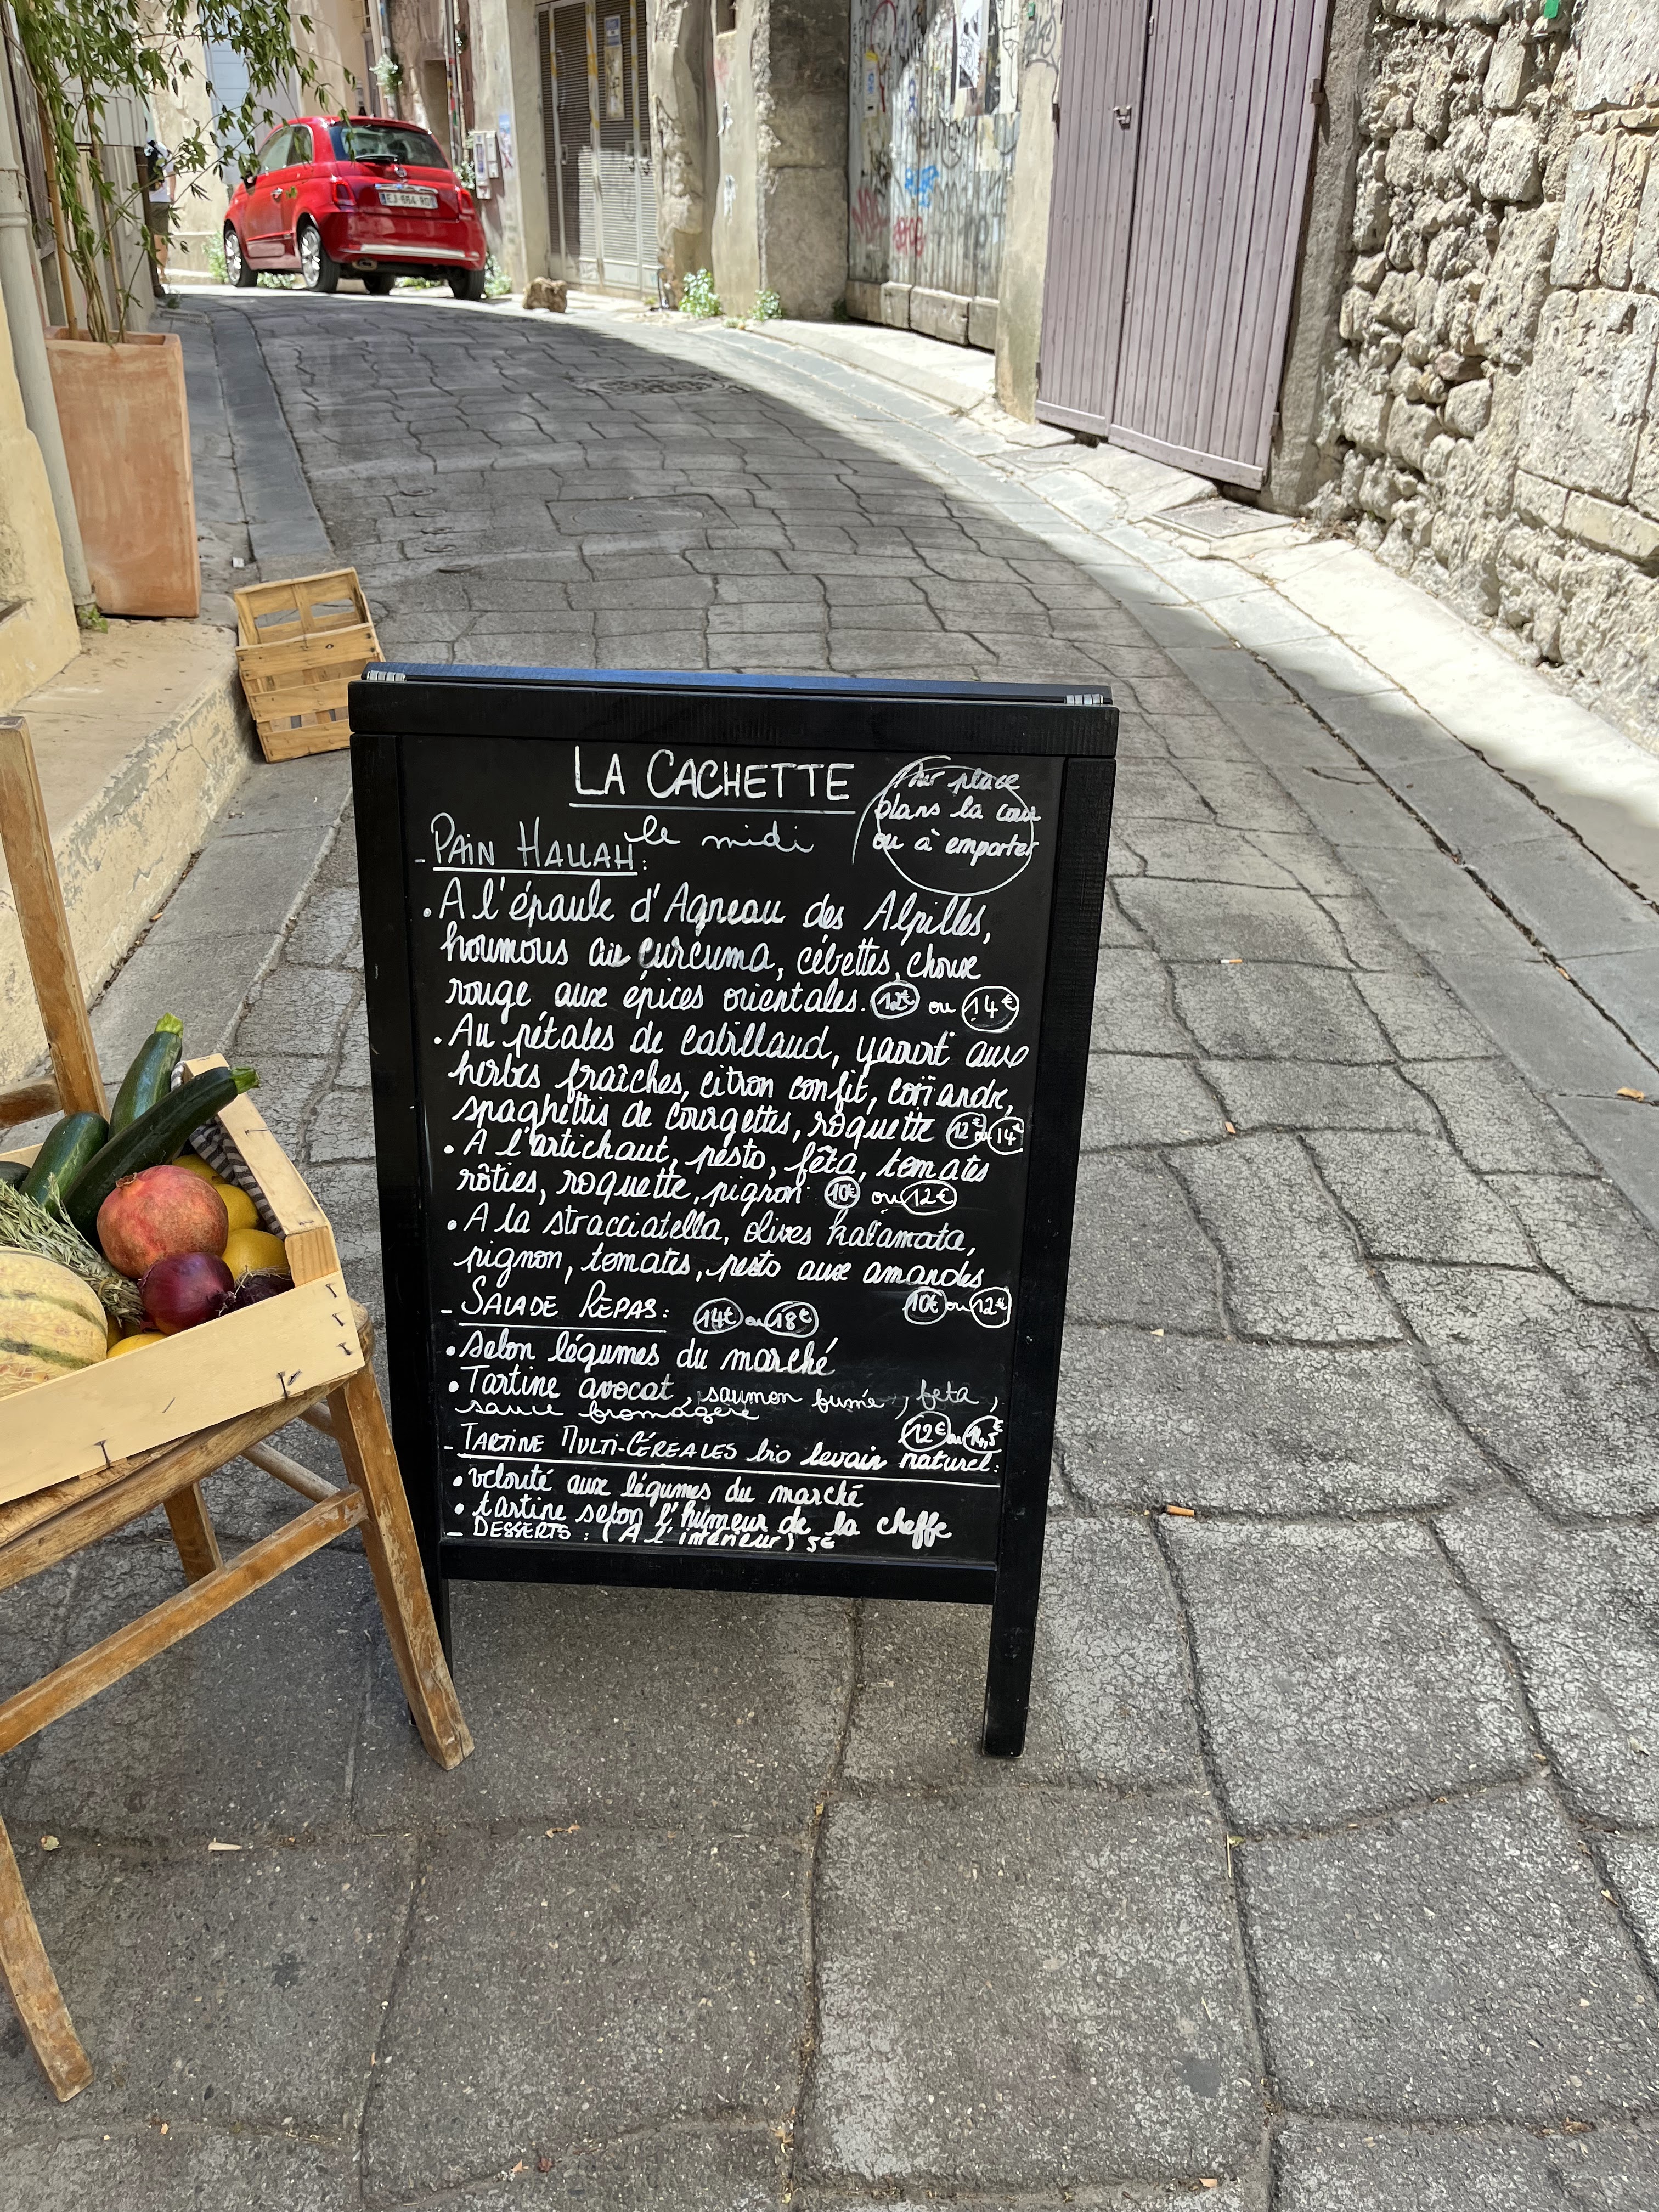 EJ 664 RD
LA CACHETTE
Sur place
dans la cour
ou à emporter
le midi
- PAIN HALLAH:
• A l'épaule d'Agneau des Alpilles,
houmous au curcuma, cébettes, choux
rouge aux épices orientales. 12€ ou 14€
• Au pétales de Cabillaud, yaourt aux
herbes fraîches, citron confit, coriandre,
spaghettis de courgettes, roquette 12€ ou 14€
• A l'artichaut, pesto, fêta, tomates
rôties, roquette, pignon 10€ ou 12€
• A la stracciatella, olives kalamata,
pignon, tomates, pesto aux amandes
10€ ou 12€
- SALADE REPAS: 14€ ou 18€
• Selon légumes du marché
• Tartine avocat, saumon fumé, feta,
sauce fromagère
12€ ou
- TARTINE MULTI-CÉRÉALES bio levain naturel:
• velouté aux légumes du marché
• tartine selon l'humeur de la cheffe
- DESSERTS : (A l'intérieur) 5€